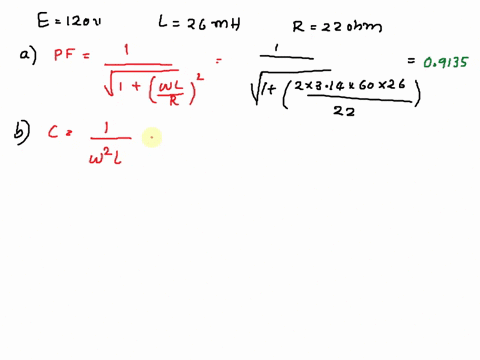 E = 120v L = 26 mH R = 22 ohm
a) PF = 1 / √(1 + (ωL/R)²) = 1 / √(1 + (2×3.14×60×26 / 22)) = 0.9135
b) C = 1 / ω²L